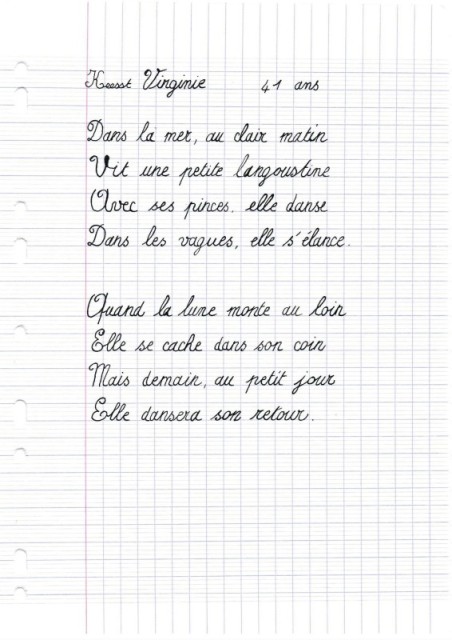 Virginie 41 ans
Dans la mer, au clair matin
Vit une petite langoustine
Avec ses pinces, elle danse
Dans les vagues, elle s'élance.
Quand la lune monte au loin
Elle se cache dans son coin
Mais demain, au petit jour
Elle dansera son retour.